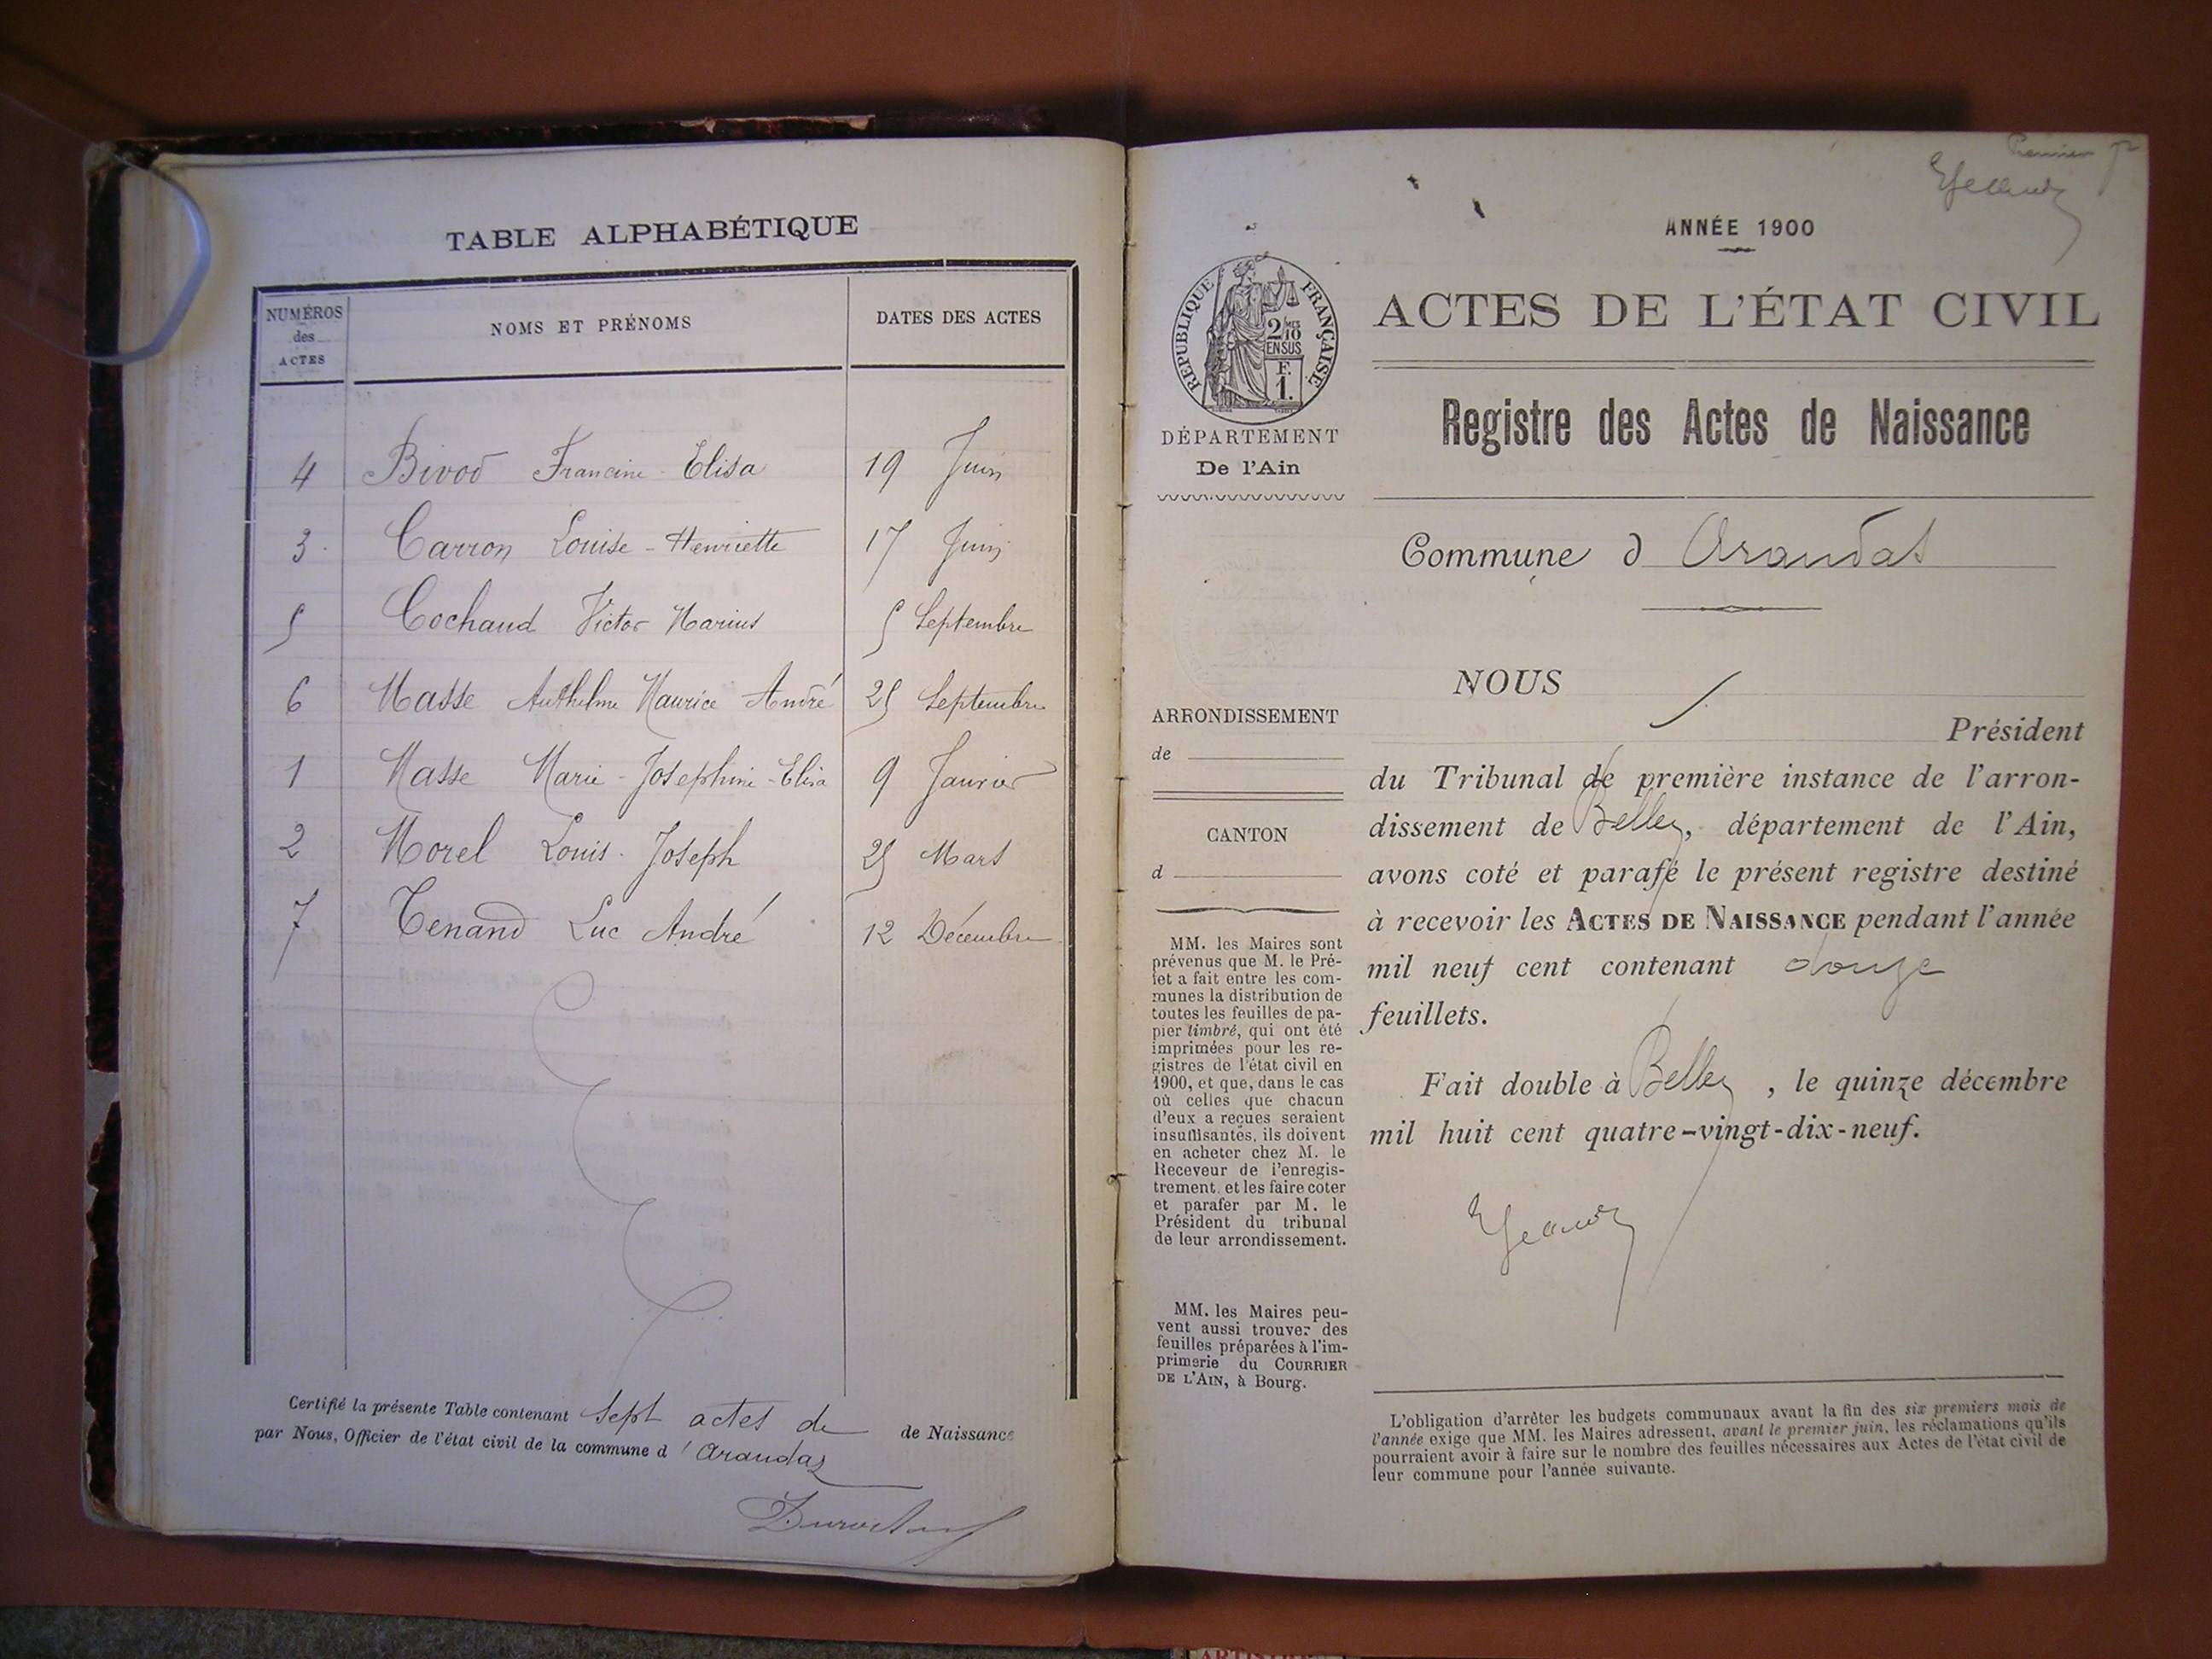 TABLE ALPHABÉTIQUE
NUMÉROS
des
ACTES
NOMS ET PRÉNOMS
DATES DES ACTES
4 Bivod Francine-Elisa 19 Juin
3 Carron Louise-Henriette 17 Juin
5 Cochaud Victor Marius 5 Septembre
6 Masse Anthelme Maurice André 25 Septembre
1 Masse Marie-Josephine-Elisa 9 Janvier
2 Morel Louis-Joseph 25 Mars
7 Tenand Luc André 12 Décembre
Certifié la présente Table contenant sept actes de de Naissance
par Nous, Officier de l'état civil de la commune d'Arandas
Premier
ANNÉE 1900
RÉPUBLIQUE FRANÇAISE
2/10
EN SUS
F.
1.
ACTES DE L'ÉTAT CIVIL
DÉPARTEMENT
De l'Ain
Registre des Actes de Naissance
Commune d Arandas
NOUS
Président
du Tribunal de première instance de l'arron-
dissement de Belley, département de l'Ain,
avons coté et parafé le présent registre destiné
à recevoir les ACTES DE NAISSANCE pendant l'année
mil neuf cent contenant douze
feuillets.
Fait double à Belley, le quinze décembre
mil huit cent quatre-vingt-dix-neuf.
ARRONDISSEMENT
de
CANTON
d
MM. les Maires sont
prévenus que M. le Pré-
fet a fait entre les com-
munes la distribution de
toutes les feuilles de pa-
pier timbré, qui ont été
imprimées pour les re-
gistres de l'état civil en
1900, et que, dans le cas
où celles que chacun
d'eux a reçues seraient
insuffisantes, ils doivent
en acheter chez M. le
Receveur de l'enregis-
trement, et les faire coter
et parafer par M. le
Président du tribunal
de leur arrondissement.
MM. les Maires peu-
vent aussi trouver des
feuilles préparées à l'im-
primerie du COURRIER
DE L'AIN, à Bourg.
L'obligation d'arrêter les budgets communaux avant la fin des six premiers mois de
l'année exige que MM. les Maires adressent, avant le premier juin, les réclamations qu'ils
pourraient avoir à faire sur le nombre des feuilles nécessaires aux Actes de l'état civil de
leur commune pour l'année suivante.